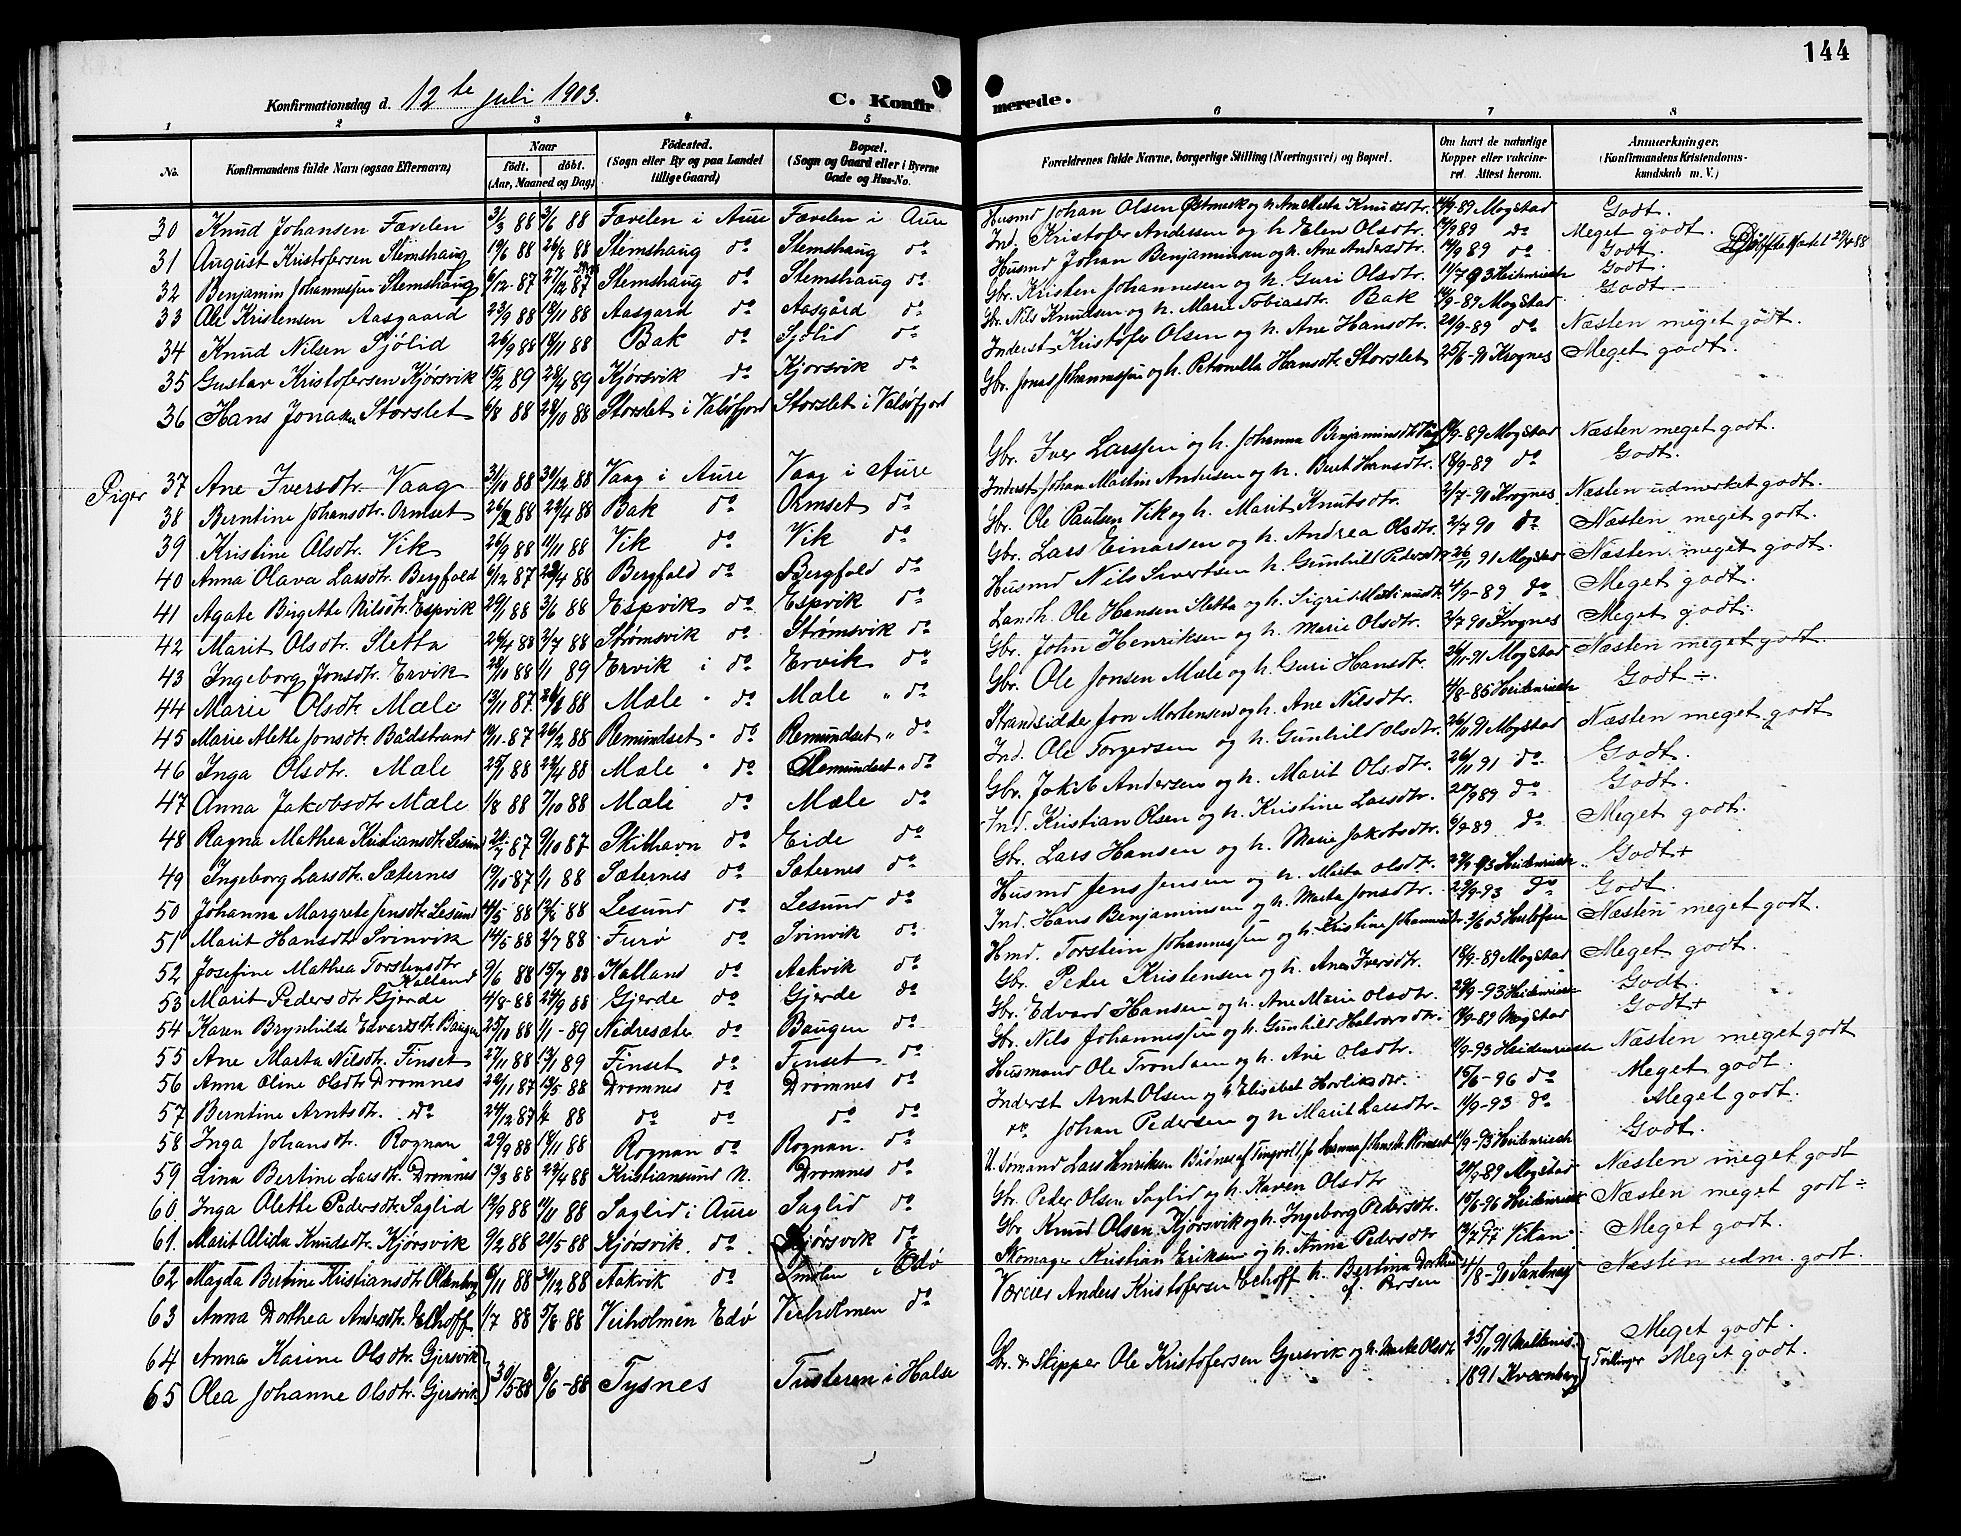 144
Konfirmationsdag d. 12te juli 1903. C. Konfirmerede.
1 2 3 4 5 6 7 8
No. Konfirmandens fulde Navn (ogsaa Efternavn) Naar født. døbt. (Aar, Maaned og Dag) Fødested. (Sogn eller By og paa Landet tillige Gaard) Bopæl. (Sogn og Gaard eller i Byerne Gade og Hus-No. Forældrenes fulde Navne, borgerlige Stilling (Næringsvei) og Bopæl. Om havt de naturlige Kopper eller vaccineret. Attest herom. Anmærkninger. (Konfirmandens Kristendomskundskab m. V.)
30 Knud Johansen Fævelen 3/3 88 3/6 88 Fævelen i Aure Fævelen i Aure Husmd Johan Olsen og h. Ane Marta Knudsdtr. 89 Mogstad Godt.
31 August Kristofersen Stemshaug 19/6 88 26/8 88 Stemshaug do Stemshaug do Ind. Kristofer Andersen og h. Elen Olsdtr. 89 do Meget godt.
32 Benjamin Johannessen Stemshaug 6/12 87 27/12 87 Stemshaug do Stemshaug do Husmd Johan Benjaminsen og h. Ane Andersdtr. 89 do Godt. 29/4 88
33 Ole Kristensen Aasgaard 23/9 88 18/11 88 Aasgard do Aasgård do Gbr. Kristen Johannesen og h. Guri Olsdtr. 11/7 93 Heidenreich Godt.
34 Knud Nilsen Sjølid 26/9 88 18/11 88 Bak do Sjølid do Gbr. Nils Knudsen og h. Marie Tobiasdtr. Bak 89 Mogstad Godt.
35 Gustav Kristofersen Kjørsvik 15/2 89 28/4 89 Kjørsvik do Kjørsvik do Inderst Kristofer Olsen og h. Ane Hansdtr. 20/9-89 do Næsten meget godt.
36 Hans Jonassen Storslet 6/8 88 28/10 88 Storslet i Valsøfjord Storslet i Valsøfjord Gbr. Jonas Johannessen og h. Petronella Hansdtr. Storslet 25/6-90 Krognes Meget godt.
Piger
37 Ane Iversdtr. Vaag 3/10 88 30/12 88 Vaag i Aure Vaag i Aure Gbr. Iver Larssen og h. Johanna Benjaminsdtr. 89 Mogstad Næsten meget godt.
38 Berntine Johansdtr. Ormset 26/2 88 22/4 88 Bak do Ormset do Inderst Johan Martin Andersen og h. Berit Hansdtr. 18/9-89 do Godt.
39 Kristine Olsdtr. Vik 26/9 88 11/11 88 Vik do Vik do Gbr. Ole Paulsen Vik og h. Marit Knutsdtr. 2/7-90 Krognes Næsten udmerket godt.
40 Anna Olava Larsdtr. Bergfald 6/12 87 22/4 88 Bergfald do Bergfald do Gbr. Lars Einarsen og h. Andrea Olsdtr. 2/7 90 do Næsten meget godt.
41 Agate Birgette Nilsdtr. Espvik 29/1 88 3/6 88 Espvik do Espvik do Husmd Nils Sivertsen h. Gunhild Pedersdtr. 26/11 91 Mogstad Næsten meget godt.
42 Marit Olsdtr. Sletta 26/4 88 2/7 88 Strømsvik do Strømsvik do Landh. Ole Hansen Sletta og h. Sigrid 4/9-89 do Meget godt.
43 Ingeborg Jonsdtr. Ervik 28/10 88 1/1 89 Ervik i do Ervik do Gbr. John Henriksen og h. Marie Olsdtr. 2/7 90 Krognes Meget godt.
44 Marie Olsdtr. Mæle 13/11 87 88 Mæle " do Mæle " do Gbr. Ole Jonsen Mæle og h. Guri Hansdtr. 91 Mogstad Næsten meget godt.
45 Marie Alette Jonsdtr. Bådstrand 19/11-87 26/2 88 Remundset " do Remundset " do Strandsidder Jon Mortensen og h. Ane Nilsdtr. 85 Heidenreich Godt ÷.
46 Inga Olsdtr. Mæle 25/1 88 22/4 88 Mæle " do Remundset " do Ind. Ole Torgersen og h. Gunhild Olsdtr. 91 Mogstad Næsten meget godt
47 Anna Jakobsdtr Mæle 1/8 88 7/10 88 Mæle do Mæle do Gbr. Jakob Andersen og h. Marit Olsdtr. 26/11 91 do. Godt.
48 Ragna Mathea Kristiansdtr. Lesund 87 9/10 87 Skithavn do Eide do Ind. Kristian Olsen og h. Kristine Larsdtr. 89 do Godt.
49 Ingeborg Larsdtr. Sæternes 19/10-87 1/1 88 Sæternes do Sæternes do Gbr. Lars Hansen og h. Marie Jakobsdtr. 89 do Meget godt.
50 Johanna Margrete Jensdtr. Lesund 4/5 88 88 Lesund do Lesund do Husmd Jens Jensen og h. Marta Olsdtr. 93 Heidenreich Godt +
51 Marit Hansdtr. Svinvik 14/5 88 2/7 88 Furø do Svinvik do Ind. Hans Benjaminsen og h. Marta Jonsdtr. 29/9-93 do Godt.
52 Josefine Mathea Torstensdtr Kalland 9/6 88 15/7 88 Kalland do Aakvik do Hmd. Torstein Johannessen og h. Kristine 03 Næsten meget godt.
53 Marit Pedersdtr Gjerde 4/8-88 88 Gjerde do Gjerde do Gbr. Peder Kristensen og h. Ane Iversdtr. 18/9-89 Mogstad Meget godt.
54 Karen Brynhilde Edvardsdtr. Baugen 25/10 88 1/1-89 Nedresæte do Baugen do Gbr. Edvard Hansen og h. Ane Marie Olsdtr. 29/9-93 Heidenreich Godt
55 Ane Marta Nilsdtr. Finset 27/11 88 13/1 89 Finset do Finset do Gbr. Nils Johannessen og h. Gunhild Halvorsdtr. 89 Mogstad Godt +
56 Anna Oline Olsdtr. Dromnes 22/11 87 13/5 88 Dromnes do Drømnes do Husmand Ole Trondsen og h. Ane Olsdtr. 93 Heidenreich Næsten meget godt
57 Berntine Arntsdtr. do 24/12 87 88 do do do do Inderst Arnt Olsen og h. Elisabet 15/6-96 do Meget godt.
58 Inga Johansdtr. Rognan 29/9 88 18/11 88 Rognan do Rognan. do do Johan Pedersen og h. Marit Larsdtr. 11/9-93 do Meget godt.
59 Lina Bertine Larsdtr. Dromnes 13/3 88 22/4 88 Kristiansund N. Dromnes do U. Sømand Lars Henriksen Bådnes af Tingvoll, 93 Heidenreich Godt.
60 Inga Alette Pedersdtr. Saglid 12/9 88 11/11 88 Saglid i Aure Saglid do Gbr. Peder Olsen Saglid og h. Karen Olsdtr 89 Mogstad Næsten meget godt
61. Marit Alida Knudsdtr. Kjørsvik 9/2 88 20/5 88 Kjørsvik. do. Kjørsvik do Gbr Knud Olsen Kjørsvik og h. Ingeborg Pedersdtr. 15/6-96 Heidenreich Næsten meget godt ÷
62 Magda Bertine Kristiansdtr. 6/11 88 88 Aakvik do Smølen i Edø Skomager Kristian Eriksen og h. Anna Pedersdtr 97 Vikan Meget godt.
63 Anna Dorthea Andersdtr. Elhoff 1/7 88 5/8 88 Veiholmen Edø Veiholmen do Væreier Anders Kristofersen Elhoff h. Bertina Dorthea 4/8-90 Næsten udm. godt.
64 Anna Karine Olsdtr. Gjersvik 30/5 88 8/6-88 Tysnes Tusteren i Halse Gbr. & Skipper Ole Kristofersen Gjersvik og h. Marta Olsdtr 25/10 91 Tvillinger Meget godt.
65 Olea Johanne Olsdtr. Gjersvik 1891 Kvarnberg Meget godt.